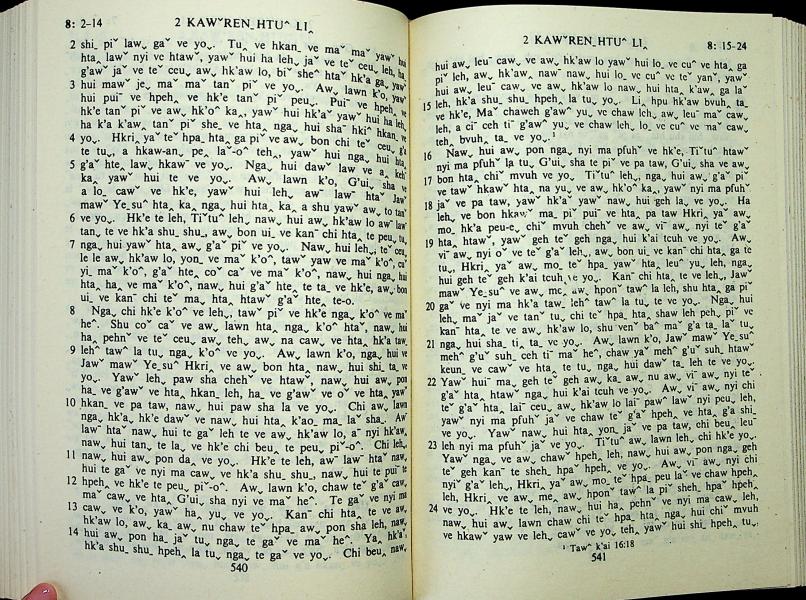 8: 2-14
2 KAWˇREN_HTUˆ LI‸
2 shi_ piˇ law⌄ gaˇ ve yo⌄. Tu‸ ve hkan_ ve maˇ maˇ yawˇ hui
hta‸ lawˇ nyi ve htawˇ, yawˇ hui ha leh, jaˇ ve teˇ ceu⌄ leh, ha_
g'awˇ jaˇ ve teˇ ceu⌄ aw⌄ hk'aw lo, biˇ sheˆ htaˇ hk'a ga⌄ yawˇ
3 hui mawˇ je⌄ maˇ maˇ tanˉ piˇ ve yo⌄. Aw⌄ lawn k'o, yawˇ
hui puiˉ ve hpeh⌄ ve hk'e tanˉ piˇ peu⌄. Puiˉ ve hpeh⌄ ve
hk'e tanˉ piˇ ve aw⌄ hk'oˆ ka‸, yawˇ hui hk'aˇ yawˇ hui ha leh,
ha k'a k'aw‸ tanˉ piˇ she⌄ ve hta‸ nga⌄ hui shaˉ hkiˆ hkan_ ve
4 yo⌄. Hkri‸ yaˇ teˇ hpa_ hta‸ ga piˇ ve aw⌄ bon chi teˇ ceu⌄ g'a
te tu⌄, a hkaw-an_ pe‸ laˇ-oˆ teh‸, yawˇ hui nga⌄ hui hta‸
5 g'aˇ hte‸ law⌄ hkawˇ ve yo⌄. Nga⌄ hui dawˇ law⌄ ve a_ kehˇ
ka‸ yawˇ hui te ve yo⌄. Aw⌄ lawn k'o, G'ui‸ sha ve
a lo_ cawˇ ve hk'e, yawˇ hui leh, awˉ lawˉ htaˇ Jawˇ
mawˇ Ye_suˆ hta‸ nga⌄ hui hta‸ ka‸ a shu yawˇ aw⌄ to tanˉ
6 ve yo⌄. Hk'e te leh, Tiˇtuˆ leh⌄ naw⌄ hui aw⌄ hk'aw lo awˉ law⌄
tan⌄ te ve hk'a shu_ shu_ aw⌄ bon ui_ ve kanˉ chi hta‸ te peu⌄ tu⌄
7 nga⌄ hui yawˇ hta‸ aw⌄ g'aˇ piˇ ve yo⌄. Naw⌄ hui leh⌄, teˇ ceu⌄
le le aw⌄ hk'aw lo, yon_ ve maˇ k'oˆ, tawˇ yaw ve maˇ k'oˆ, cuˇ
yi_ maˇ k'oˆ, g'aˇ hte‸ coˇ caˇ ve maˇ k'oˆ, naw⌄ hui nga⌄ hui
hta‸ haˬ ve maˇ k'oˆ, naw⌄ hui g'aˇ hte‸ te ta_ ve hk'e, aw⌄ bon
ui_ ve kanˉ chi teˇ ma⌄ hta‸ htawˇ g'aˇ hte‸ te-o.
8 Nga⌄ chi hk'e k'oˆ ve leh⌄, tawˇ piˇ ve hk'e nga⌄ k'oˆ ve maˇ
heˆ. Shu coˇ caˇ ve aw⌄ lawn hta‸ nga⌄ k'oˆ htaˇ, naw⌄ hui
ha‸ pehnˇ ve teˇ ceu⌄ aw⌄ teh⌄ aw⌄ na caw⌄ ve hta‸ hk'a taw‸
9 lehˆ tawˆ la tu⌄ nga⌄ k'oˆ ve yo⌄. Aw⌄ lawn k'o, nga⌄ hui ve
Jawˇ mawˇ Ye_suˆ Hkri‸ ve aw⌄ bon hta‸ naw⌄ hui shi_ ta_ ve
yo⌄. Yawˇ leh⌄ paw sha chehˇ ve htawˇ, naw⌄ hui aw⌄ pon
ha_ ve g'awˇ ve hta‸ hkan_ leh, ha_ ve g'awˇ ve oˇ ve hta‸ yawˇ
10 hkan_ ve pa taw⌄ naw⌄ hui paw sha la ve yo⌄. Chi aw⌄ lawn
nga⌄ hk'a⌄ hk'e dawˇ ve naw⌄ hui hta‸ k'ao_ ma_ laˇ sha_. Awˉ
lawˉ htaˇ naw⌄ hui te gaˇ leh te ve aw⌄ hk'aw lo, aˉ nyi hk'aw⌄
naw⌄ hui tan_ te la_ ve hk'e chi beu_ te peu⌄ piˇ-oˆ. Chi leh⌄,
11 naw⌄ hui aw⌄ pon da⌄ ve yo⌄. Hk'e te leh, awˉ lawˉ htaˇ naw⌄
hui te gaˇ ve nyi ma caw⌄ ve hk'a shu_ shu_, naw⌄ hui te puiˉ te
12 hpeh⌄ ve hk'e te peu⌄ piˇ-oˆ. Aw⌄ lawn k'o, chaw teˇ g'aˇ caw⌄
maˇ caw⌄ ve hta‸, G'ui‸ sha nyi ve maˇ heˆ. Te gaˇ ve nyi ma
13 caw⌄ ve k'o, yawˇ ha‸ yu⌄ ve yo⌄. Kanˉ chi hta‸ te ve aw⌄
hk'aw lo, aw⌄ ka_ aw⌄ nu chaw teˇ hpa_ aw⌄ pon sha leh, naw⌄
14 hui aw⌄ pon ha_ jaˇ tu⌄ nga⌄ te gaˇ ve maˇ heˆ. Ya‸ hk'aˇ,
hk'a shu_ shu_ hpeh‸ la tu⌄ nga⌄ te gaˇ ve yo⌄. Chi beu_ naw⌄
540
2 KAWˇREN_HTUˆ LI‸
8: 15-24
hui aw⌄ leuˉ caw⌄ ve aw⌄ hk'aw lo yawˇ hui lo_ ve cuˆ ve hta‸ ga
piˇ leh, aw⌄ hk'aw⌄ nawˇ naw⌄ hui lo_ ve cuˆ ve teˇ yanˇ, yawˇ
hui aw⌄ leuˉ caw⌄ ve aw⌄ hk'aw lo naw⌄ hui hta‸ k'aw‸ ga laˇ
15 leh, hk'a shu_ shu_ hpeh‸ la tu⌄ yo⌄. Li‸ hpu hk'aw bvuh‸ ta_
ve hk'e, Maˇ chaweh g'awˇ yu⌄ ve chaw leh⌄ aw⌄ leuˉ maˇ caw⌄
leh, a ciˇ ceh tiˉ g'awˇ yu⌄ ve chaw leh⌄ lo_ ve cuˆ ve maˇ caw⌄
teh‸ bvuh‸ ta_ ve yo⌄.¹
16 Naw⌄ hui aw⌄ pon nga⌄ nyi ma pfuhˇ ve hk'e, Tiˇtuˆ htawˇ
nyi ma pfuhˇ la tu⌄ G'ui‸ sha te piˇ ve pa taw⌄ G'ui‸ sha ve aw⌄
17 bon hta‸ chiˇ mvuh ve yo⌄. Tiˇtuˆ leh⌄, nga⌄ hui aw⌄ g'aˇ piˇ
ve tawˇ hkawˇ hta‸ na yu⌄ ve aw⌄ hk'oˆ ka‸, yawˇ nyi ma pfuhˇ
18 jaˇ ve pa taw⌄ yawˇ hk'aˇ yawˇ naw⌄ hui geh la⌄ ve yo⌄. Ha
leh⌄ ve bon hkawˇ ma_ piˇ puiˉ ve hta‸ pa taw Hkri‸ yaˇ aw⌄
mo_ hk'a peu-e⌄ chiˇ mvuh chehˇ ve aw⌄ viˉ aw⌄ nyi teˇ g'aˇ
19 hta‸ htawˇ, yawˇ geh teˇ geh nga⌄ hui k'ai tcuh ve yo⌄. Aw⌄
viˉ aw⌄ nyi oˇ ve teˇ g'aˇ leh⌄, aw⌄ bon ui_ ve kanˉ chi hta‸ ga te
tu⌄, Hkri‸ yaˇ aw⌄ mo_ teˇ hpa_ yawˇ hta‸ leuˆ yu⌄ leh, nga⌄
hui geh teˇ geh k'ai tcuh ve yo⌄. Kanˉ chi hta‸ te ve leh⌄, Jawˇ
mawˇ Ye_suˆ ve aw⌄ me‸ aw⌄ hponˇ tawˆ la leh, shu hta‸ ga piˇ
20 gaˇ ve nyi ma hk'a taw‸ lehˆ tawˆ la tu⌄ te ve yo⌄. Nga⌄ hui
leh⌄ maˇ jaˇ ve tanˉ tu⌄ chi teˇ hpa_ hta‸ shaw leh peh⌄ piˇ ve
kanˉ hta‸ te ve aw⌄ hk'aw lo, shu venˇ baˆ maˇ g'a ta_ laˇ tu⌄
21 nga⌄ hui sha_ ti‸ ta_ ve yo⌄. Aw⌄ lawn k'o, Jawˇ mawˇ Ye_suˆ
mehˆ g'uˇ suh_ ceh tiˉ maˇ heˆ, chaw yaˇ mehˆ g'uˇ suh_ htawˇ
keun_ ve cawˇ ve hta‸ te tu⌄ nga⌄ hui dawˇ ta_ leh te ve yo⌄.
22 Yawˇ huiˉ ma_ geh teˇ geh aw⌄ ka_ aw⌄ nu aw⌄ viˉ aw⌄ nyi teˇ
g'aˇ hta‸ htawˇ nga⌄ hui k'ai tcuh ve yo⌄. Aw⌄ viˉ aw⌄ nyi chi
teˇ g'aˇ hta‸ laiˉ ceu⌄ aw⌄ hk'aw lo laiˉ pawˇ lawˇ nyi peu⌄ leh,
yawˇ nyi ma pfuhˇ jaˇ ve chaw teˇ g'aˇ hpeh‸ ve hta‸ g'a shi_
ve yo⌄. Yawˇ naw⌄ hui hta‸ yon_ jaˇ ve pa taw⌄ chi beu_ leuˉ
23 leh nyi ma pfuhˇ jaˇ ve yo⌄. Tiˇtuˆ aw⌄ lawn leh⌄ chi hk'e yo⌄.
Yawˇ nga⌄ ve aw⌄ chawˇ hpeh‸ leh, naw⌄ hui aw⌄ pon nga⌄ geh
teˇ geh kanˉ te sheh_ hpaˇ hpeh‸ ve yo⌄. Aw⌄ viˉ aw⌄ nyi chi
nyiˇ g'aˇ leh⌄, Hkri‸ ve aw⌄ mo_ teˇ hpa_ peu⌄ laˇ ve chaw hpeh‸
leh, Hkri‸ ve aw⌄ me‸ aw⌄ hponˇ tawˆ la piˇ sheh_ hpaˇ hpeh‸
24 ve yo⌄. Hk'e te leh, naw⌄ hui ha‸ pehnˇ ve nyi ma caw⌄ leh,
naw⌄ hui aw⌄ lawn chaw chi teˇ hpa_ hta‸ nga⌄ hui chiˇ mvuh
ve hkawˇ yaw⌄ ve leh⌄ cawˇ ve yo⌄ teh‸ yawˇ hui shi_ hpeh‸ tu⌄.
¹ Tawˆ k'ai 16:18
541